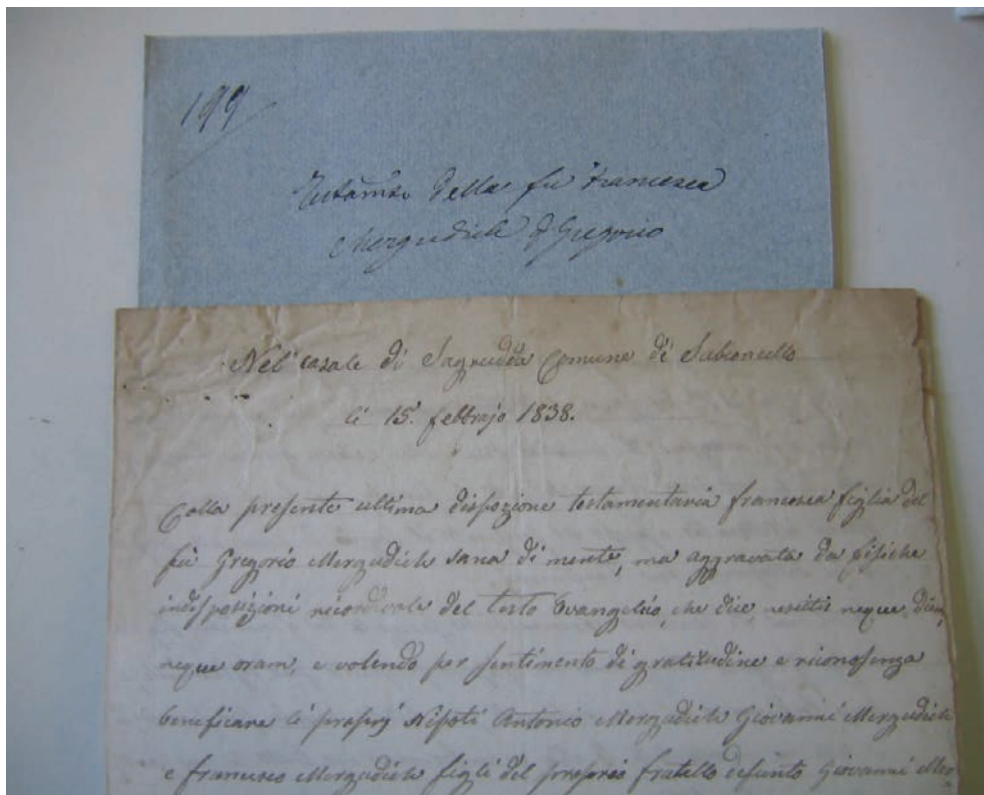 199
Testam̃to della fù Francesca
Mergudich d Gregorio
Nel casale di Sagrudda Comune di Sabioncello
li 15. febbrajo 1838.
Colla presente ultima disposizione testamentaria francesca figlia del
fù Gregorio Mergudich sana di mente, ma aggravata da fisiche
indisposizioni ricordivole del testo Evangelio, che dice nescitis neque diem,
neque oram, e volendo per sentimento di gratitudine e riconosenza
beneficare li proprj Nipoti Antonio Mergudich Giovanni Mergudich
e francesco Mergudich figli del proprio fratello defunto Giovanni Mer-